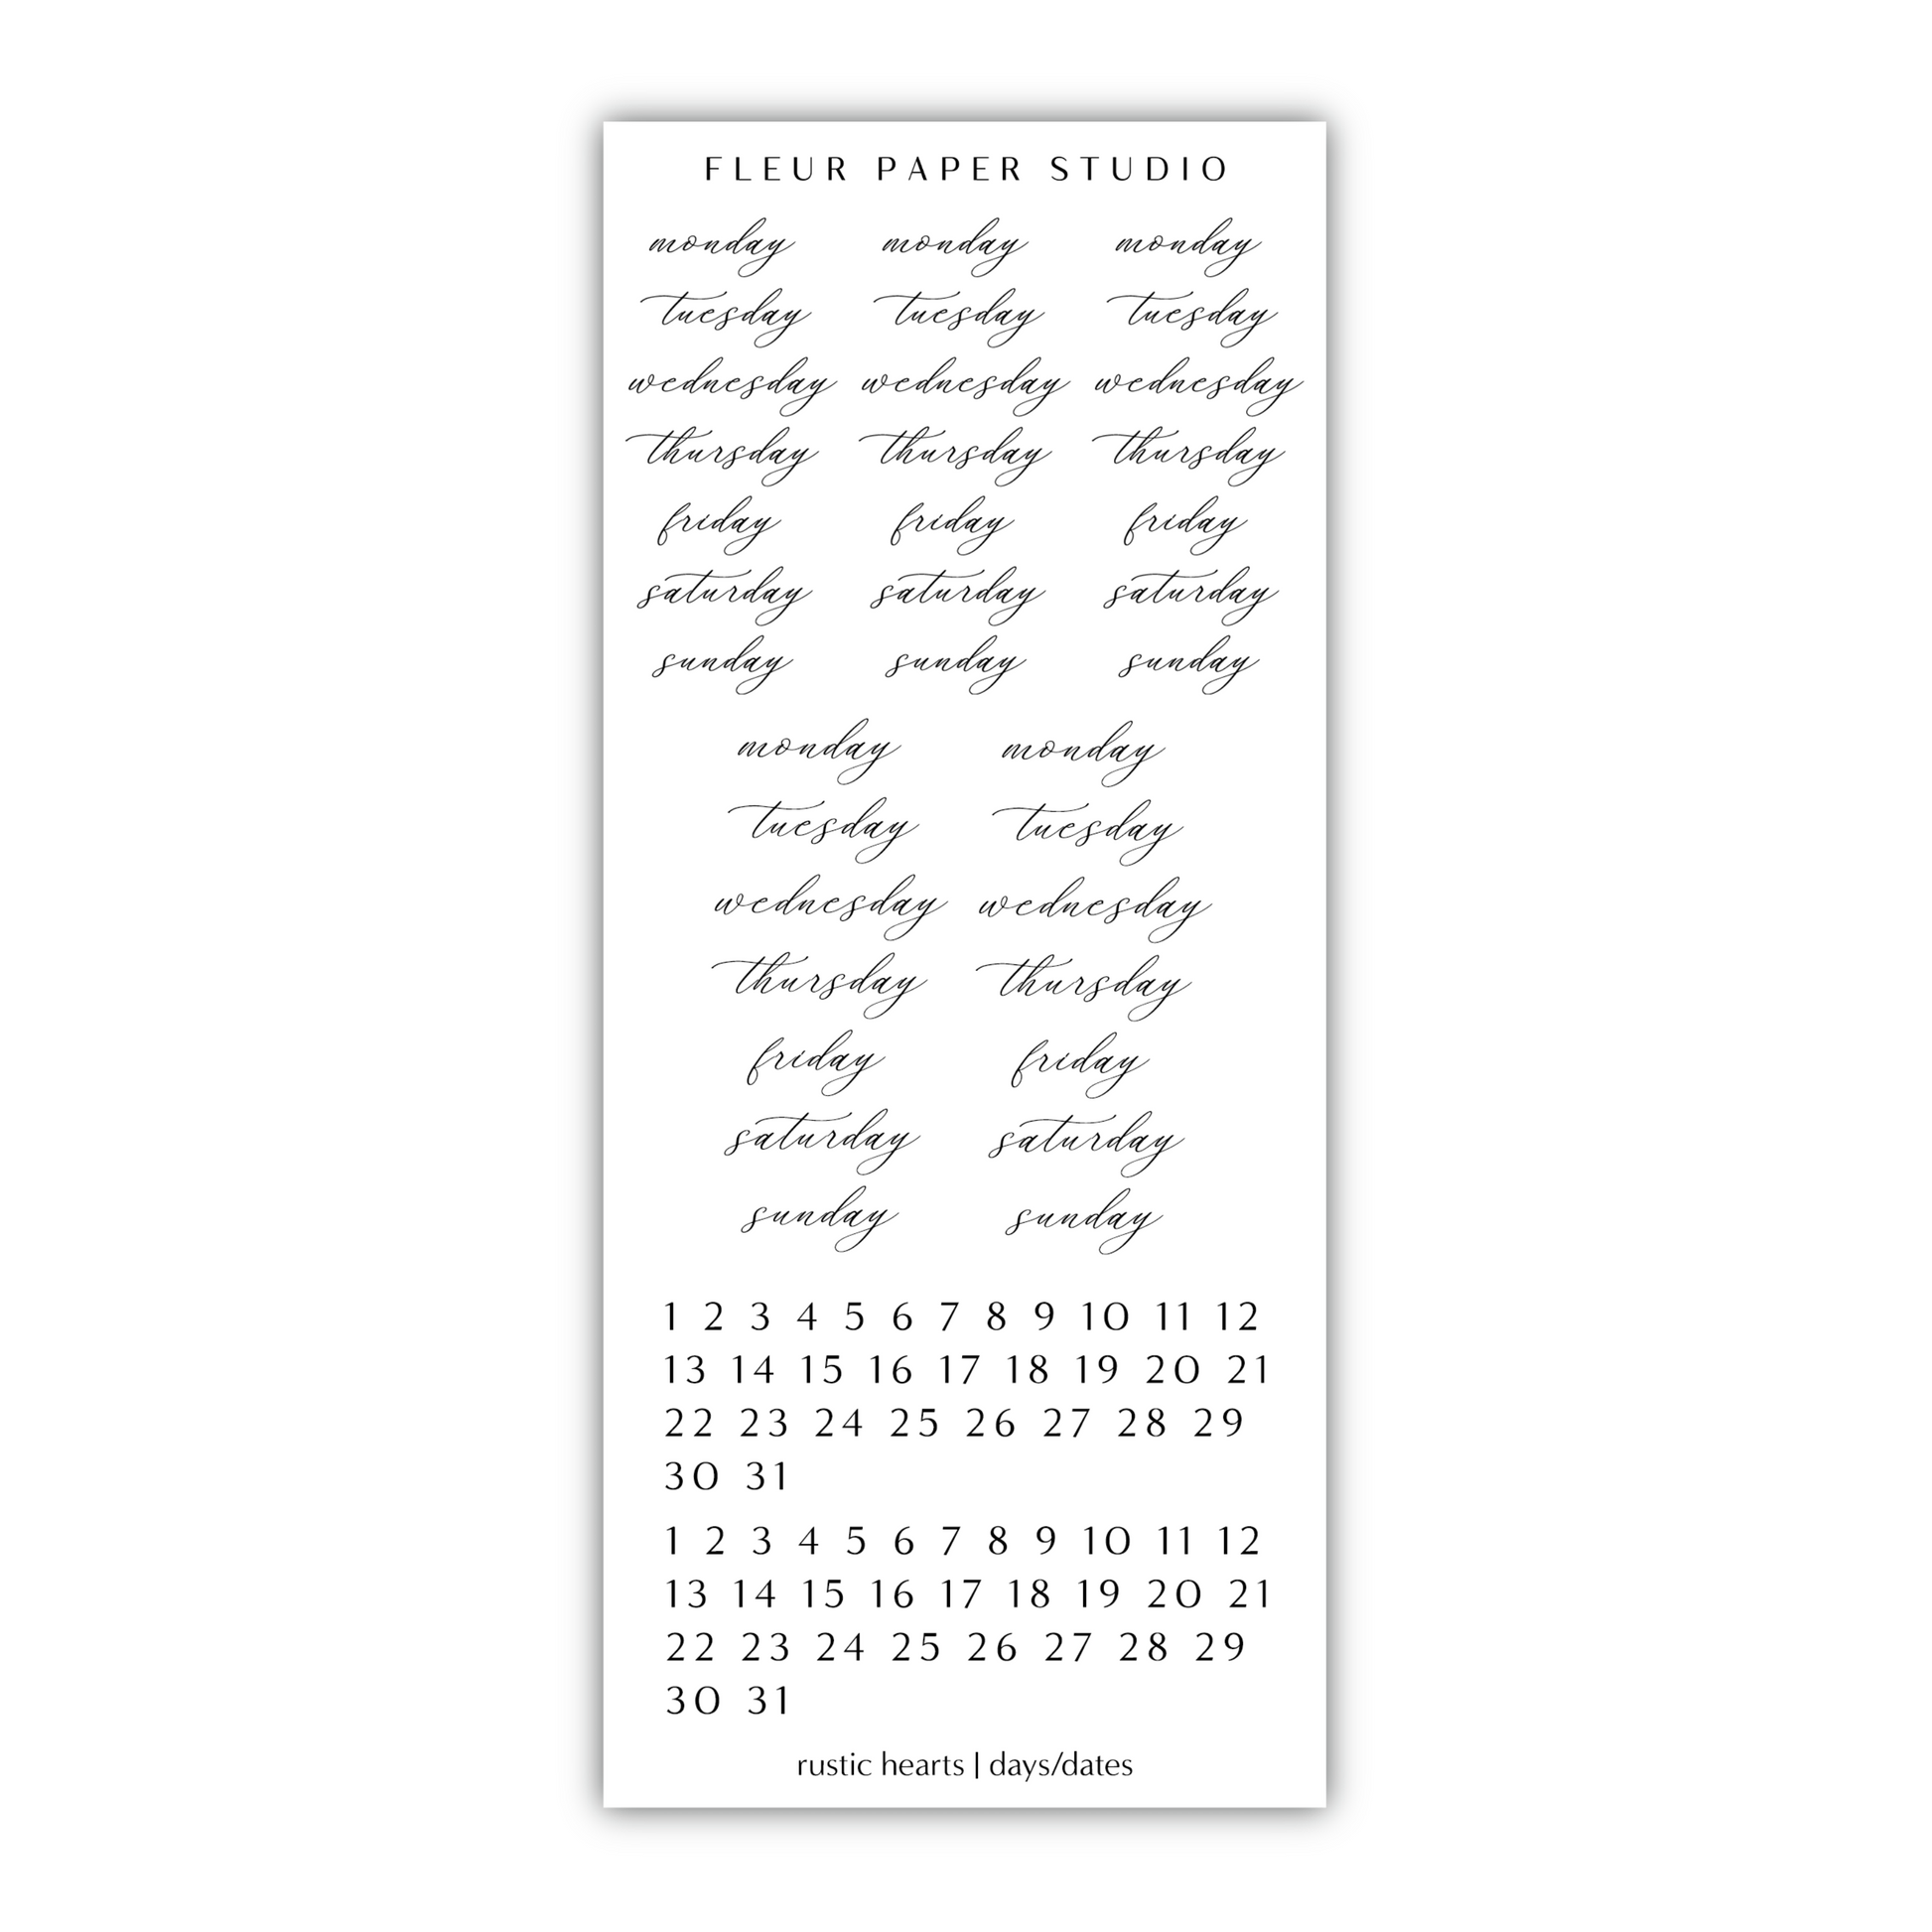 FLEUR PAPER STUDIO
monday monday monday
tuesday tuesday tuesday
wednesday wednesday wednesday
thursday thursday thursday
friday friday friday
saturday saturday saturday
sunday sunday sunday
monday monday
tuesday tuesday
wednesday wednesday
thursday thursday
friday friday
saturday saturday
sunday sunday
1 2 3 4 5 6 7 8 9 10 11 12
13 14 15 16 17 18 19 20 21
22 23 24 25 26 27 28 29
30 31
1 2 3 4 5 6 7 8 9 10 11 12
13 14 15 16 17 18 19 20 21
22 23 24 25 26 27 28 29
30 31
rustic hearts | days/dates